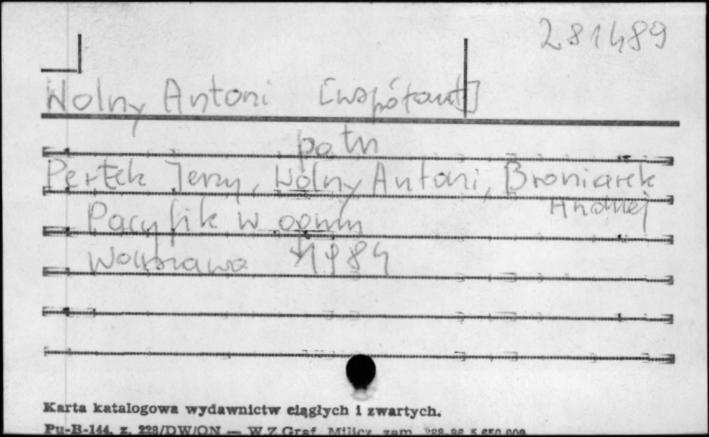 281489
Wolny Antoni [współaut]
patrz
Pertek Jerzy, Wolny Antoni, Broniarek
Andrzej
Pacyfik w ogniu
Warszawa 1984
Karta katalogowa wydawnictw ciągłych i zwartych.
Pu-B-144, z. 228/DW/ON — W.Z.Graf. Milicz zam.